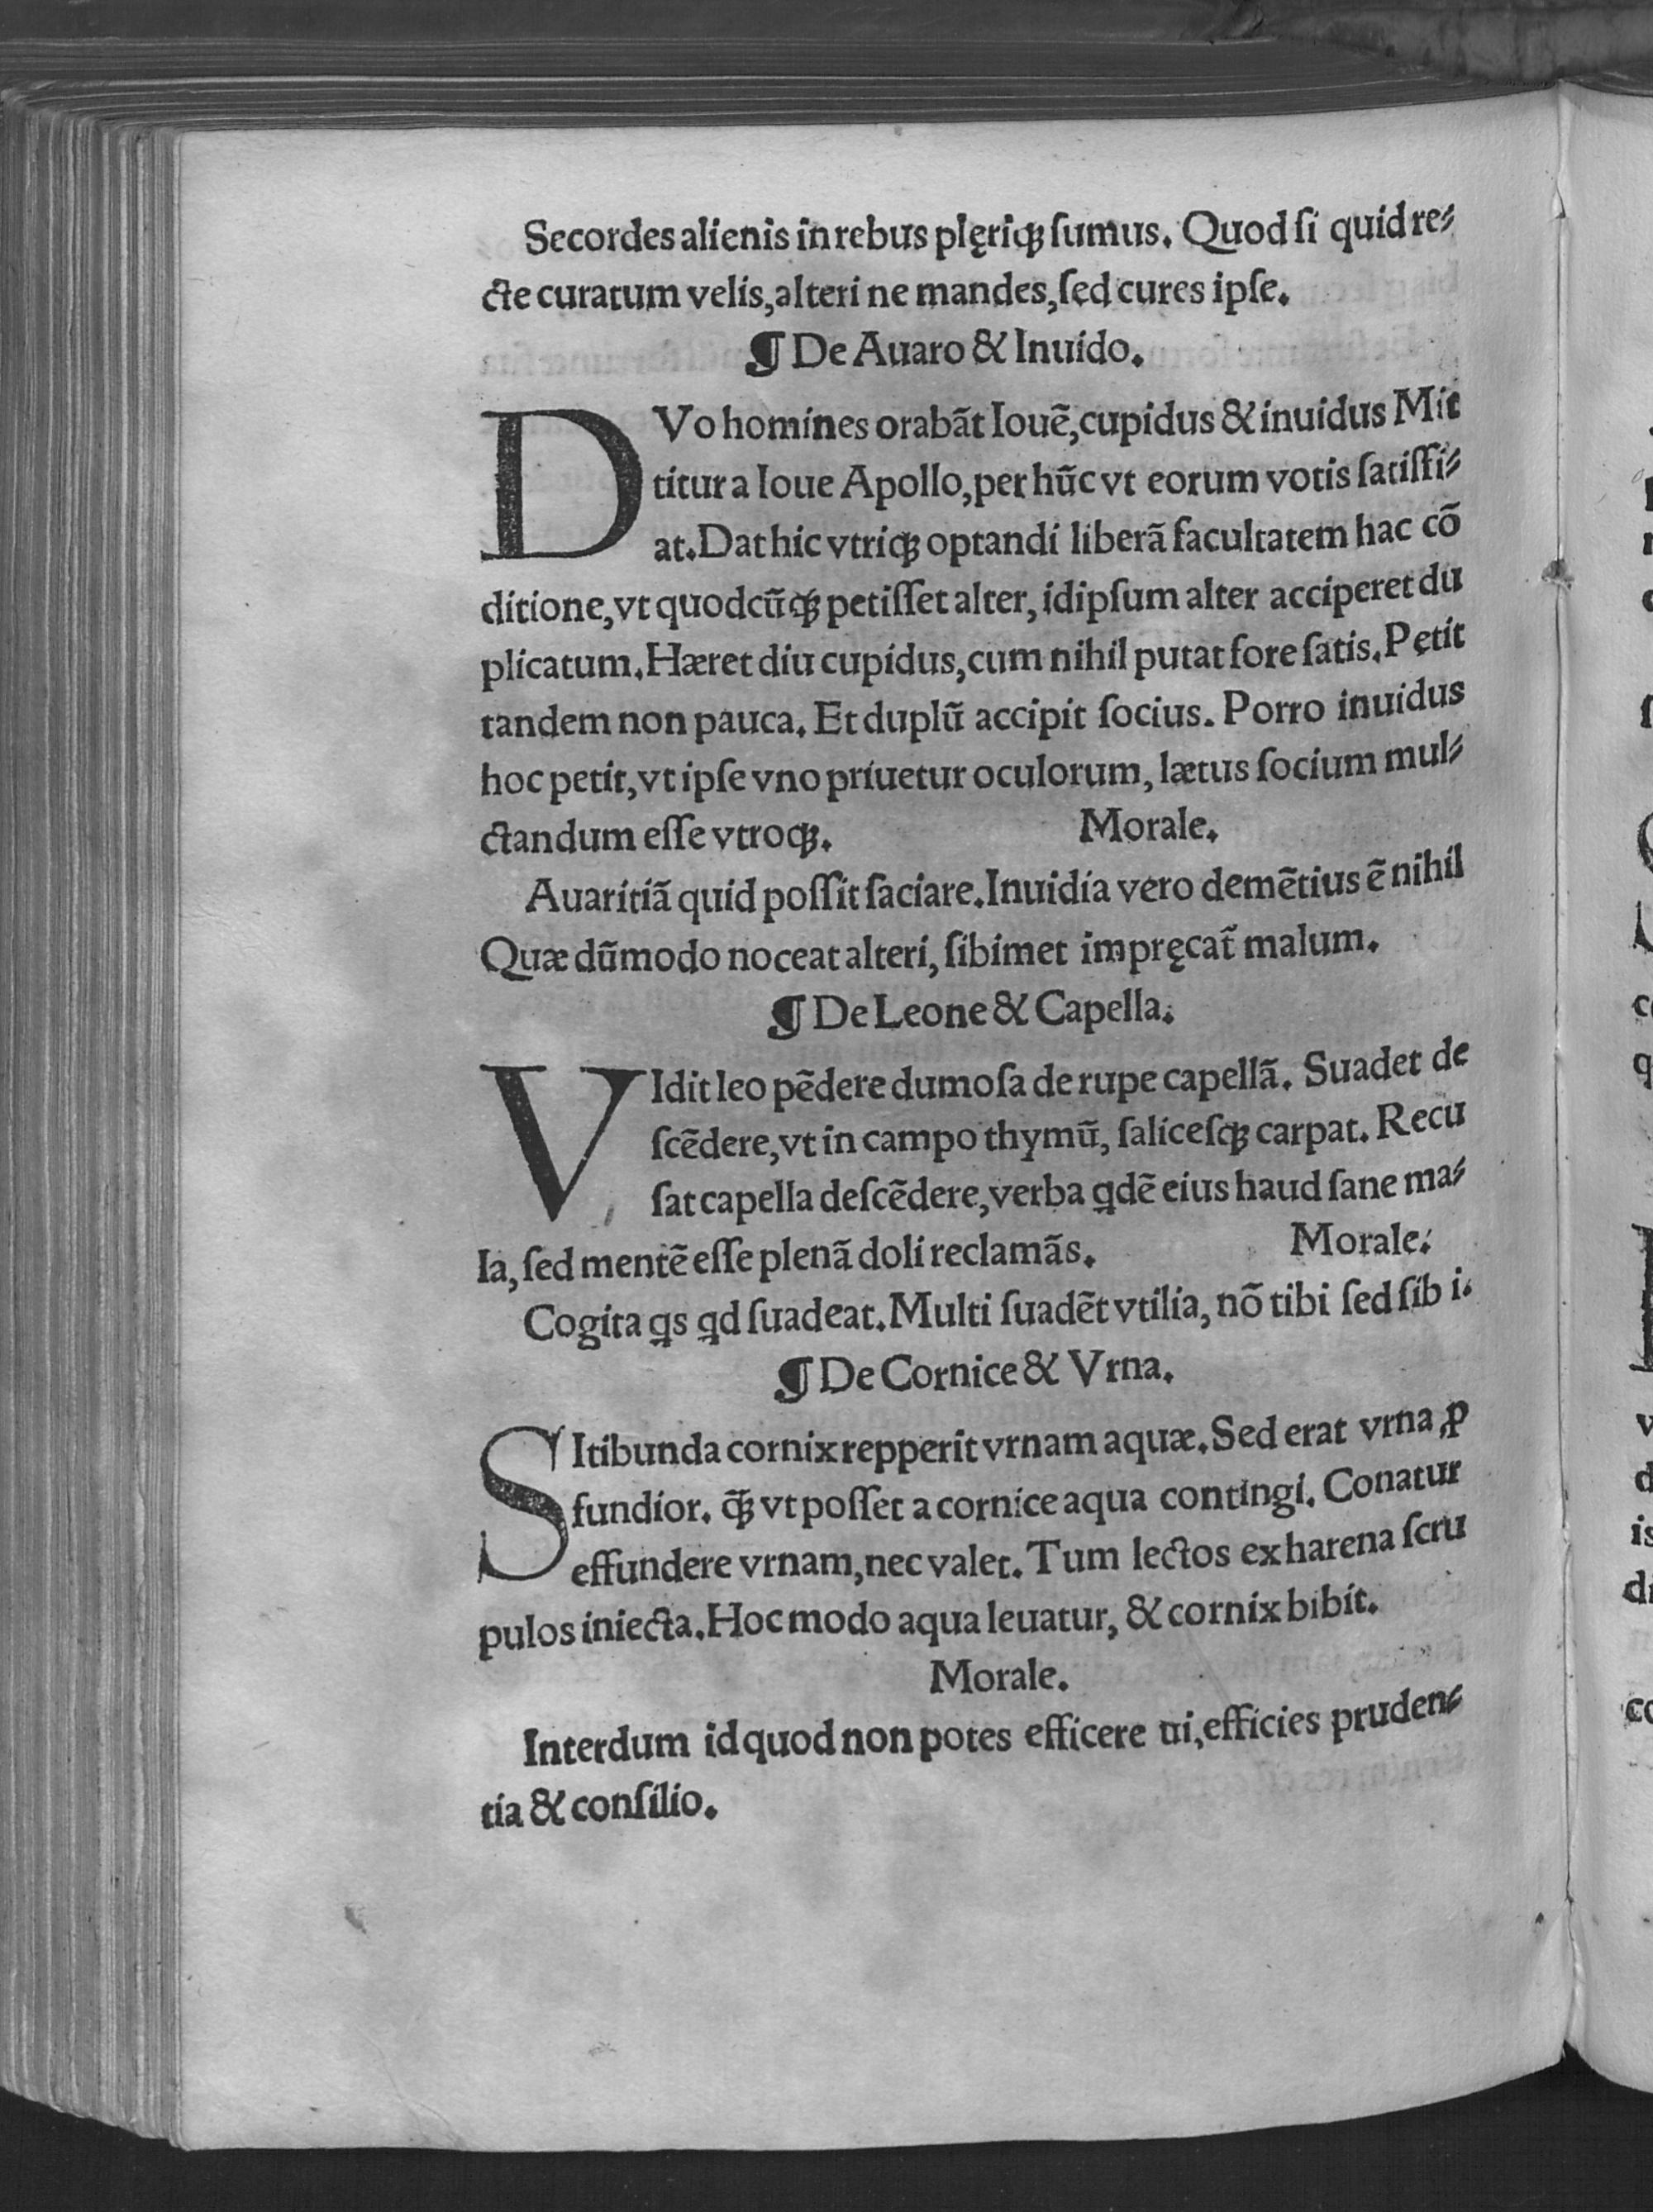 Secordes alienis in rebus plęriqꝫ ſumus. Quod ſi quid re⸗
cte curatum velis, alteri ne mandes, ſed cures ipſe.
¶ De Auaro & Inuido.
DVo homines orabãt Iouẽ, cupidus & inuidus Mit
titur a Ioue Apollo, per hũc vt eorum votis ſatiſfi⸗
at. Dat hic vtriqꝫ optandi liberã facultatem hac cõ
ditione, vt quodcũqꝫ petiſſet alter, idipſum alter acciperet du
plicatum. Hæret diu cupidus, cum nihil putat fore ſatis. Pętit
tandem non pauca. Et duplũ accipit ſocius. Porro inuidus
hoc petit, vt ipſe vno priuetur oculorum, lætus ſocium mul⸗
ctandum eſſe vtroqꝫ. Morale.
Auaritiã quid poſſit ſaciare. Inuidia vero demẽtius ẽ nihil
Quæ dũmodo noceat alteri, ſibimet impręcat᷑ malum.
¶ De Leone & Capella.
VIdit leo pẽdere dumoſa de rupe capellã. Suadet de
ſcẽdere, vt in campo thymũ, ſaliceſqꝫ carpat. Recu
ſat capella deſcẽdere, verba qdẽ eius haud ſane ma⸗
la, ſed mentẽ eſſe plenã doli reclamãs. Morale.
Cogita qs qd ſuadeat. Multi ſuadẽt vtilia, nõ tibi ſed ſib i.
¶ De Cornice & Vrna.
SItibunda cornix repperit vrnam aquæ. Sed erat vrna ꝓ
fundior. q̃ꝫ vt poſſet a cornice aqua contingi. Conatur
effundere vrnam, nec valet. Tum lectos ex harena ſcru
pulos iniecta. Hoc modo aqua leuatur, & cornix bibit.
Morale.
Interdum id quod non potes efficere ui, efficies pruden⸗
tia & conſilio.